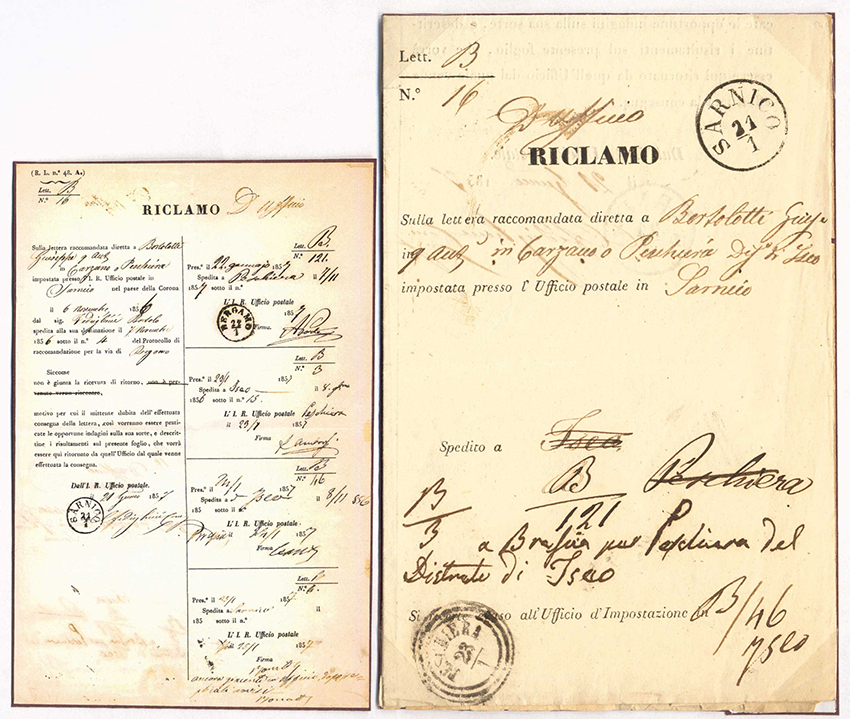 (R. L. n.° 48. A.)
Lett. B
N.° 16
RICLAMO D'Uffizio
Sulla lettera raccomandata diretta a Bortolotti
Giuseppe q Ant
in Carzano o Peschiera
impostata presso l' I. R. Ufficio postale in
Sarnico nel paese della Corona
il 6 novembre 1856
dal sig.
spedita alla sua destinazione il 7 Novembre
1856 sotto il n.° 4 del Protocollo di
raccomandazione per la via di Bergamo
Siccome
non è giunta la ricevuta di ritorno,
motivo per cui il mittente dubita dell' effettuata
consegna della lettera, così vorranno essere prati-
cate le opportune indagini sulla sua sorte, e descri-
tine i risultamenti sul presente foglio, che vorrà
essere qui ritornato da quell' Ufficio dal quale venne
effettuata la consegna.
Dall' I. R. Ufficio postale
il 21 1857
SARNICO
21
1
Lett.
N.° 121.
Pres.° il 22 gennajo 1857
Spedita a Peschiera il 7/11
185 sotto il n.°
L' I. R. Ufficio postale
BERGAMO
22
1
Firma
Lett. B
N.° 3
Pres.° il 23/1 1857
Spedita a Iseo il 8
1856 sotto il n.° 15.
L' I. R. Ufficio postale Peschiera
il 23/1 1857
Firma
Lett.
N.° 46
Pres.° il 24/1 1857
Spedita a Iseo il 8/11 856
185 sotto il n.°
L' I. R. Ufficio postale
Brescia il 24/1 1857
Firma
Lett.
N.°
Pres.° il 25/1 1857.
Spedita a Sarnico il
185 sotto il n.°
L' I. R. Ufficio postale
il 25/1 1857
Firma
Lett. B
N.° 16
D'Uffizio
RICLAMO
SARNICO
21
1
Sulla lettera raccomandata diretta a Bortolotti Giuse
in q Ant in Carzano o Peschiera Di d'Iseo
impostata presso l' Ufficio postale in
Sarnico
Spedito a Iseo
B Peschiera
121
B
3
a Brescia per Peschiera del
Distretto di Iseo
all' Ufficio d' Impostazione in B/46
Iseo
PESCHIERA
23
1